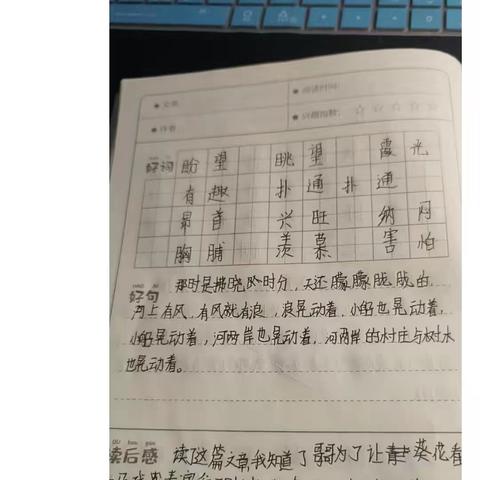 文章: 阅读时间:
作者: 兴趣指数: ☆☆☆☆☆
好词 盼望 眺望 霞光
有趣 扑通扑通
昂首 兴旺 纳闷
胸脯 羡慕 害怕
那时是拂晓时分,天还朦朦胧胧的,
好句 河上有风,有风就有浪,浪晃动着,小船也晃动着,
小船晃动着,河两岸也晃动着,河两岸的村庄与树木
也晃动着。
读后感 读了这篇文章,我知道了哥哥为了让青葵花看